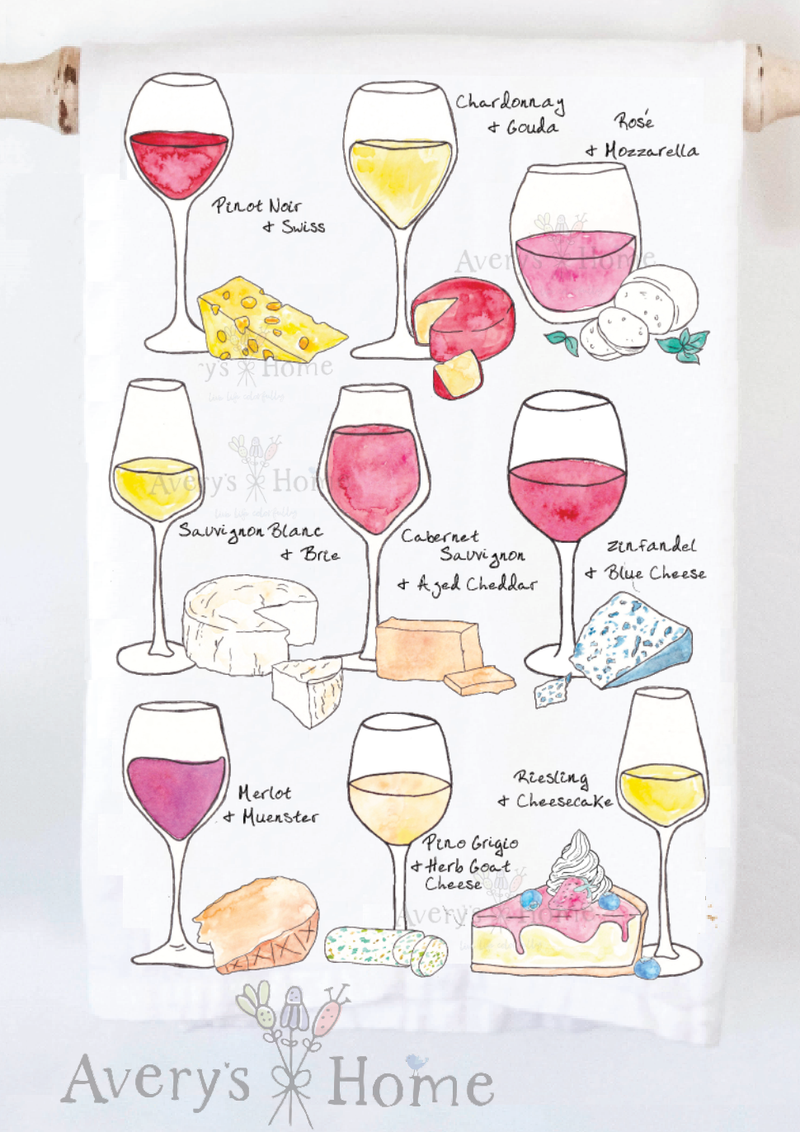 Chardonnay
& Gouda
Rosé
& Mozzarella
Pinot Noir
& Swiss
Avery's Home
y's Home
live life colorfully
Avery's Hom
live life colorfully
Sauvignon Blanc
& Brie
Cabernet
Sauvignon
& Aged Cheddar
Zinfandel
& Blue Cheese
Merlot
& Muenster
Riesling
& Cheesecake
Pino Grigio
& Herb Goat
Cheese
Avery's Home
Avery's Home